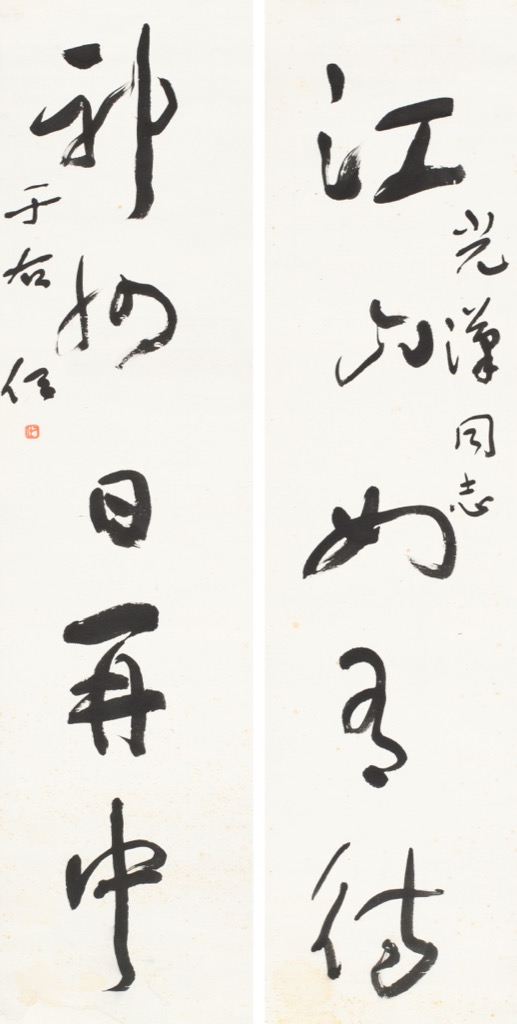 光漢同志
江山如有待
神州日再中
于右任